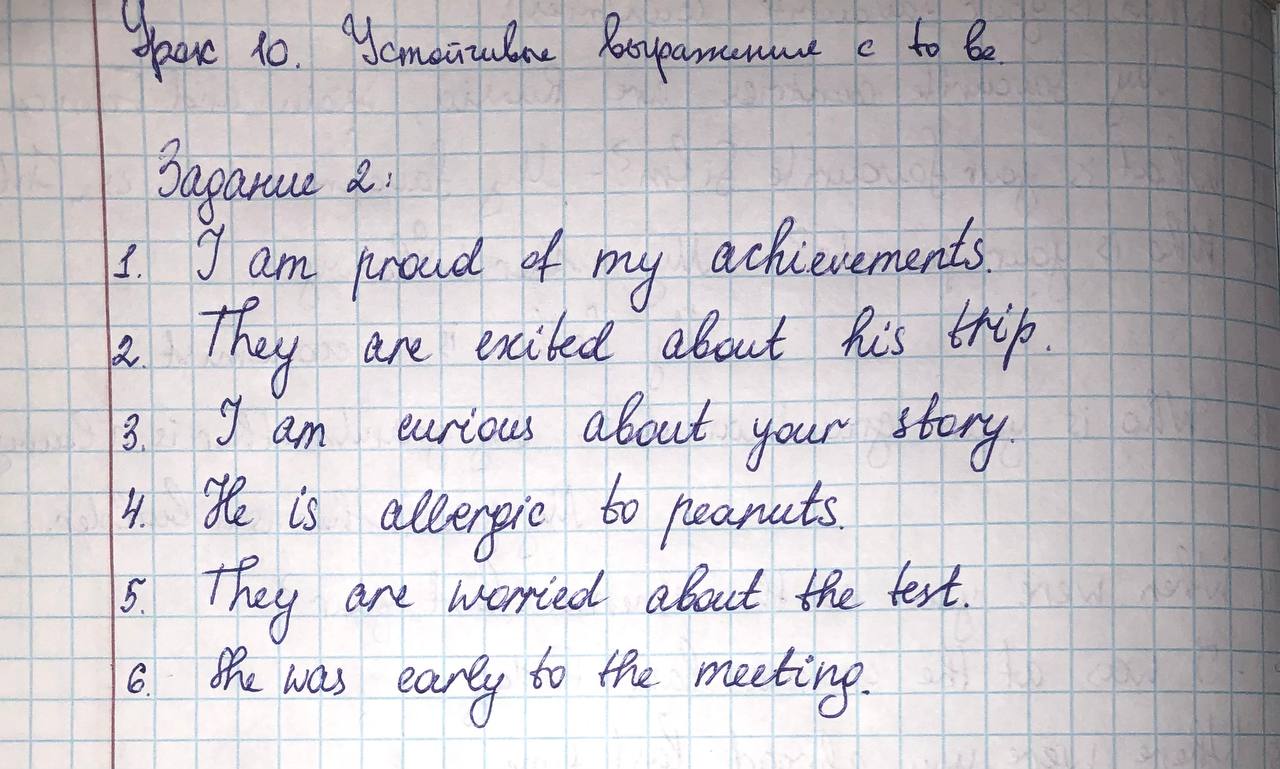 Урок 10. Устойчивые выражения с to be.
Задание 2:
1. I am proud of my achievements.
2. They are exited about his trip.
3. I am curious about your story.
4. He is allergic to peanuts.
5. They are worried about the test.
6. She was early to the meeting.